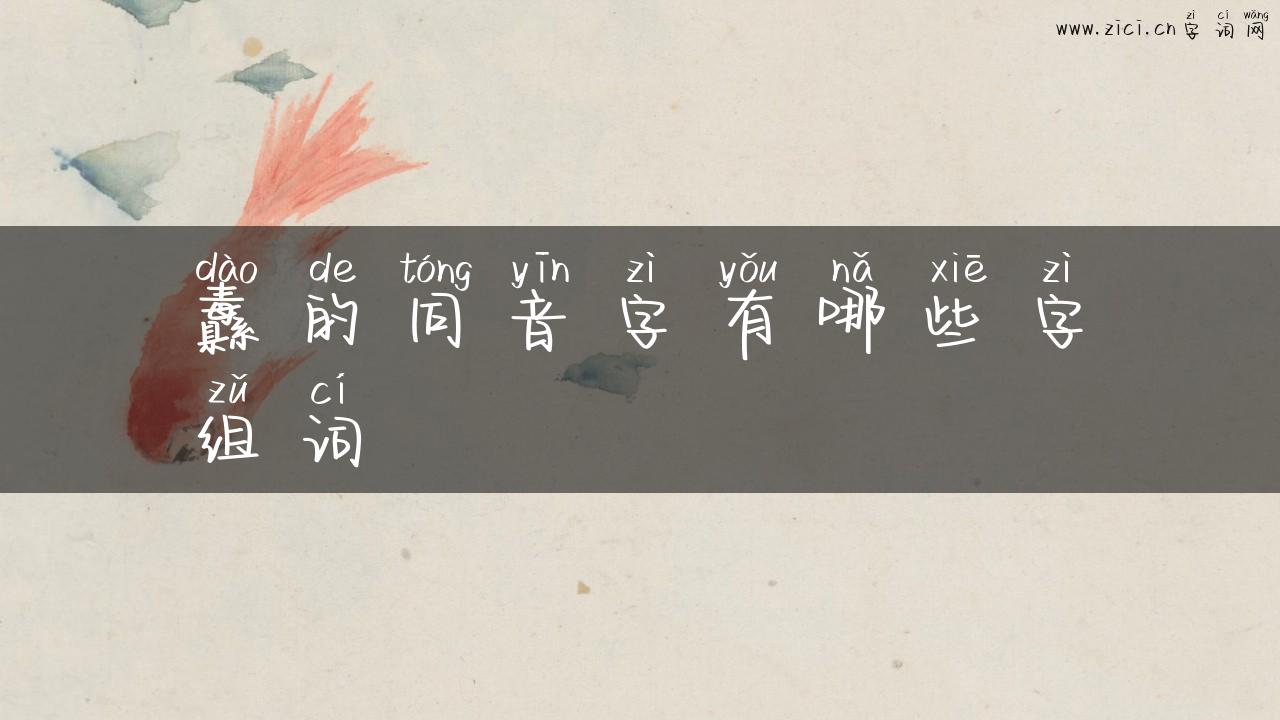 zì cí wǎng
www.zici.cn 字 词 网
dào de tóng yīn zì yǒu nǎ xiē zì
纛 的 同 音 字 有 哪 些 字
zǔ cí
组 词